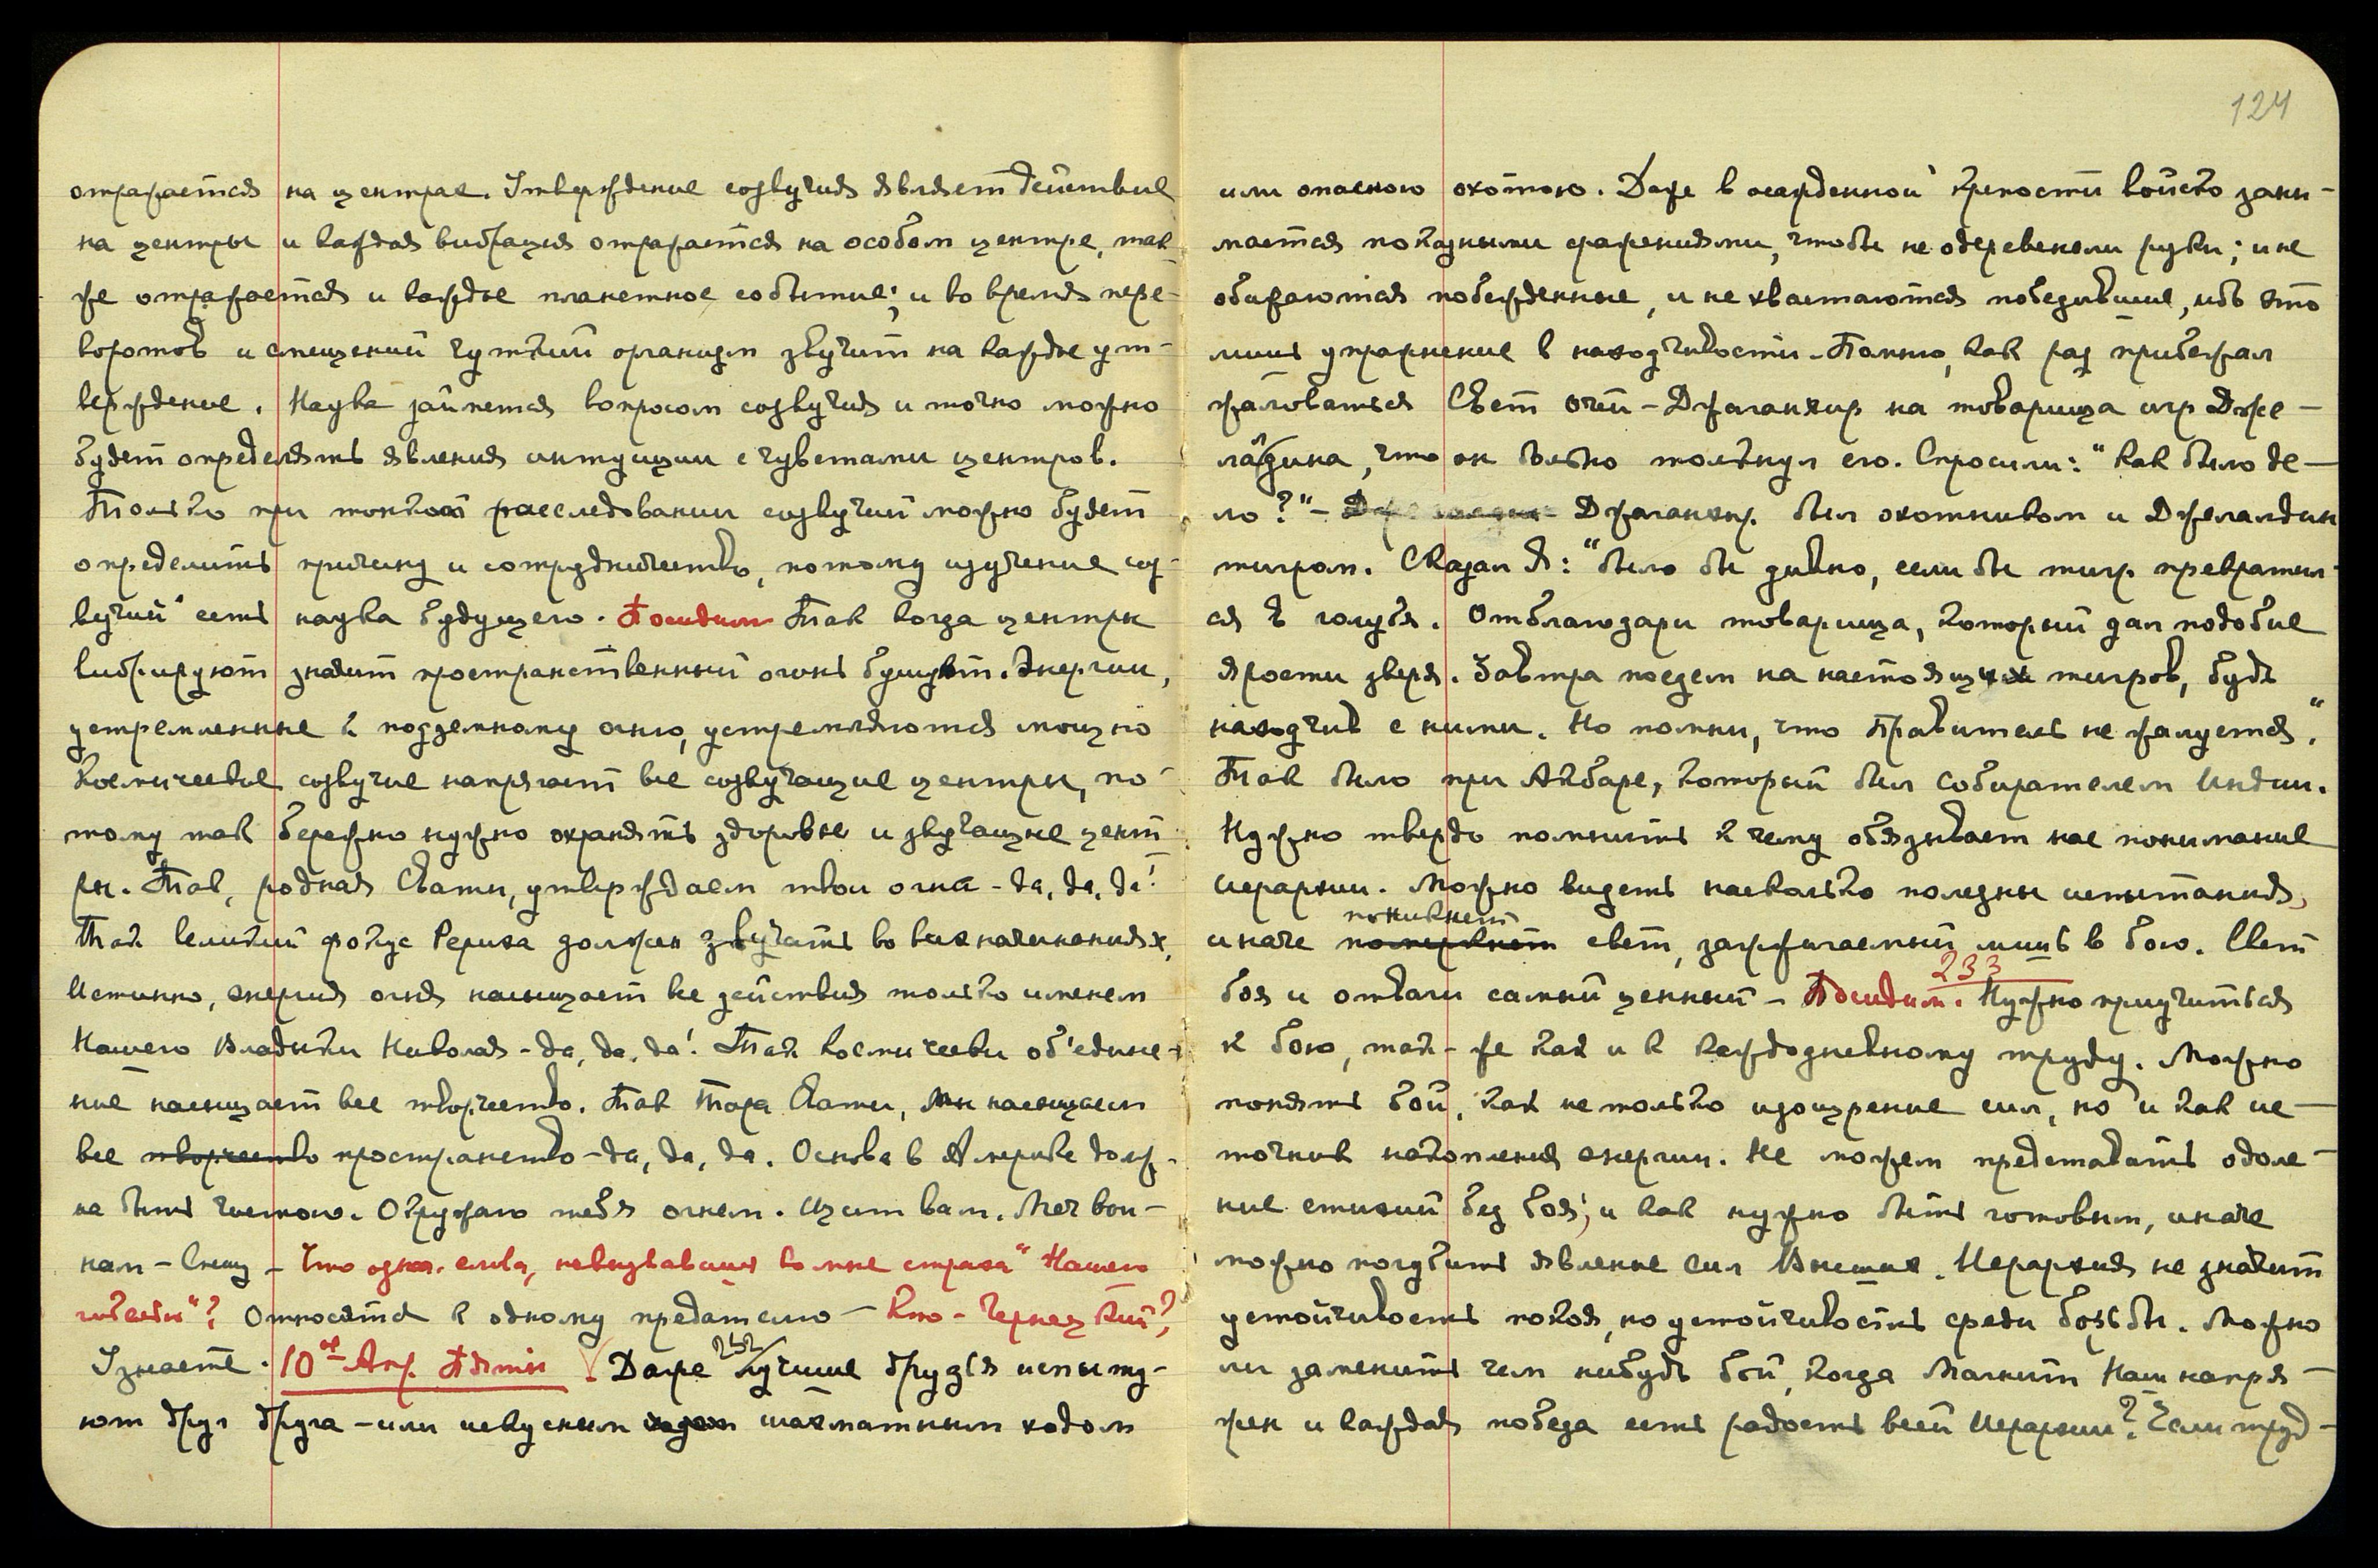 отражается на центрах. Утверждение созвучия являет действие
на центры и каждая вибрация отражается на особом центре, так-
же отражается и каждое планетное событие; и во время пере-
воротов и смещений чуткий организм звучит на каждое ут-
верждение. Наука займется вопросом созвучия и точно можно
будет определять явления интуиции с чувствами центров.
Только при тонком расследовании созвучий можно будет
определить причину и сотрудничество, потому изучение соз-
вучий есть наука будущего. Посидим Так когда центры
вибрируют значит пространственный огонь бушует. Энергии,
устремленные к подземному огню, устремляются мощно
Космическое созвучие напрягает все созвучащие центры, по-
тому так бережно нужно охранять здоровье и звучащие цент-
ры. Так, родная Свати, утверждаем твои огни - да, да, да!
Так великий фокус Рериха должен звучать во всех начинаниях,
Истинно, энергия огня насыщает все действия только именем
Нашего Владыки Николая - да, да, да! Так космически об'едине-
ние насыщает все творчество. Так Тара Свати, Мы насыщаем
все творчество пространство - да, да, да. Основа в Америке долж-
на быть чистою. Окружаю тебя огнем. Щит вам. Меч вои-
нам - Спешу - Что одна. слова, невызвавшие во мне страха "Нашего
гибели"? Относятся к одному предателю - Кто - Чернецкий?
Узнаете. 10ое Апр. Пятн V Даже 232 лучшие друзья испыту-
ют друг друга - или искусным ходом шахматным ходом
124
или опасною охотою. Даже в осажденной крепости войско зани-
мается показными сражениями, чтобы не одеревенели руки; и не
обижаются побежденные, и не хвастаются победившие, ибо это
лишь упражнение в находчивости. Помню, как раз прибежал
жаловаться Свет очей - Джагангир на товарища игр Дже-
лалдина, что он больно толкнул его. Спросили: "Как было де-
ло?" - Джагангир. был охотником и Джелалдин
тигром. Сказал Я: "было бы дивно, если бы тигр превратил-
ся в голубя. Отблагодари товарища, который дал подобие
ярости зверя. Завтра поедем на настоящих тигров, будь
находчив с ними. Но помни, что Правитель не жалуется."
Так было при Акбаре, который был собирателем Индии.
Нужно твердо помнить к чему обязывает нас понимание
Иерархии. Можно видеть насколько полезны испытания,
поникнет
иначе померкнет свет, зажигаемый лишь в бою. Свет
233
боя и отваги самый ценный - Посидим. Нужно приучиться
к бою, так-же как и к каждодневному труду. Можно
понять бой, как не только изощрение сил, но и как ис-
точник накопления энергии. Не можем представить одоле-
ние стихий без боя; и как нужно быть готовым, иначе
можно погубить явление сил Высших. Иерархия не значит
устойчивость покоя, но устойчивость среди борьбы. Можно
ли заменить чем нибудь бой, когда Магнит Наш напря-
жен и каждая победа есть радость всей Иерархии? Если труд-